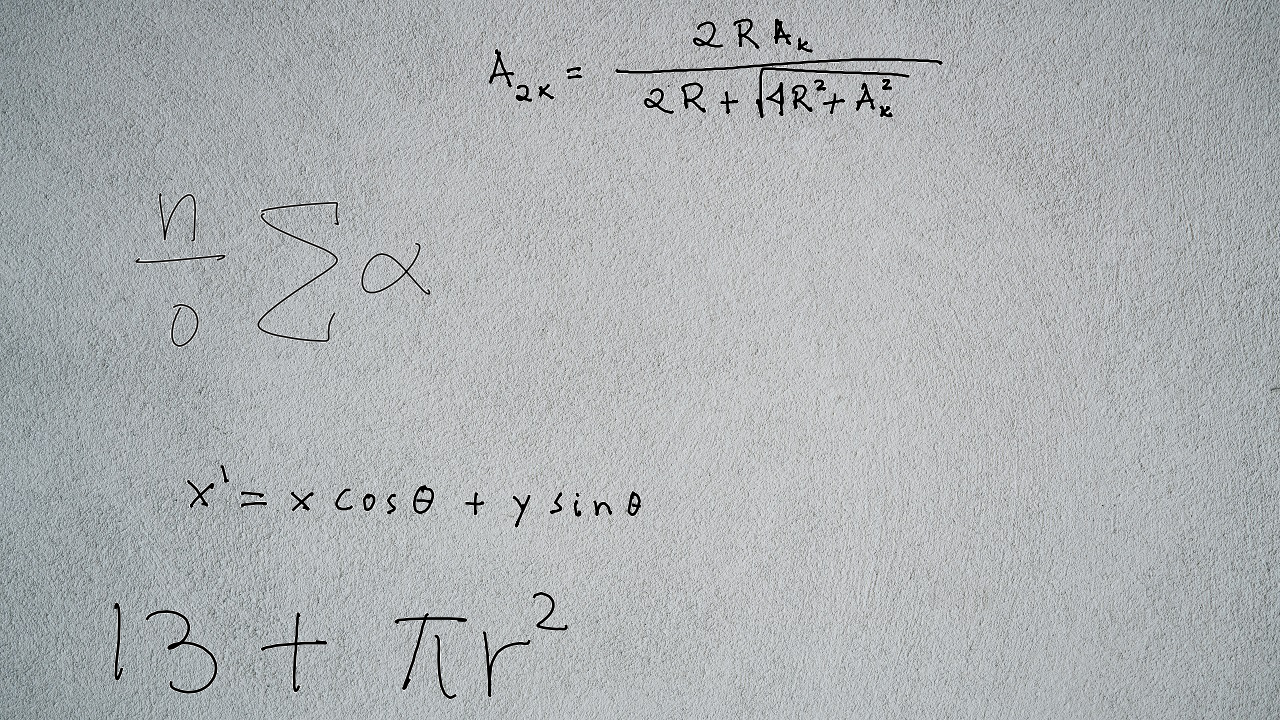 A_{2K} = \frac{2 R A_k}{2 R + \sqrt{4R^2 + A_k^2}}
\frac{n}{0} \sum \alpha
x' = x cos θ + y sin θ
13 + \pi r^2